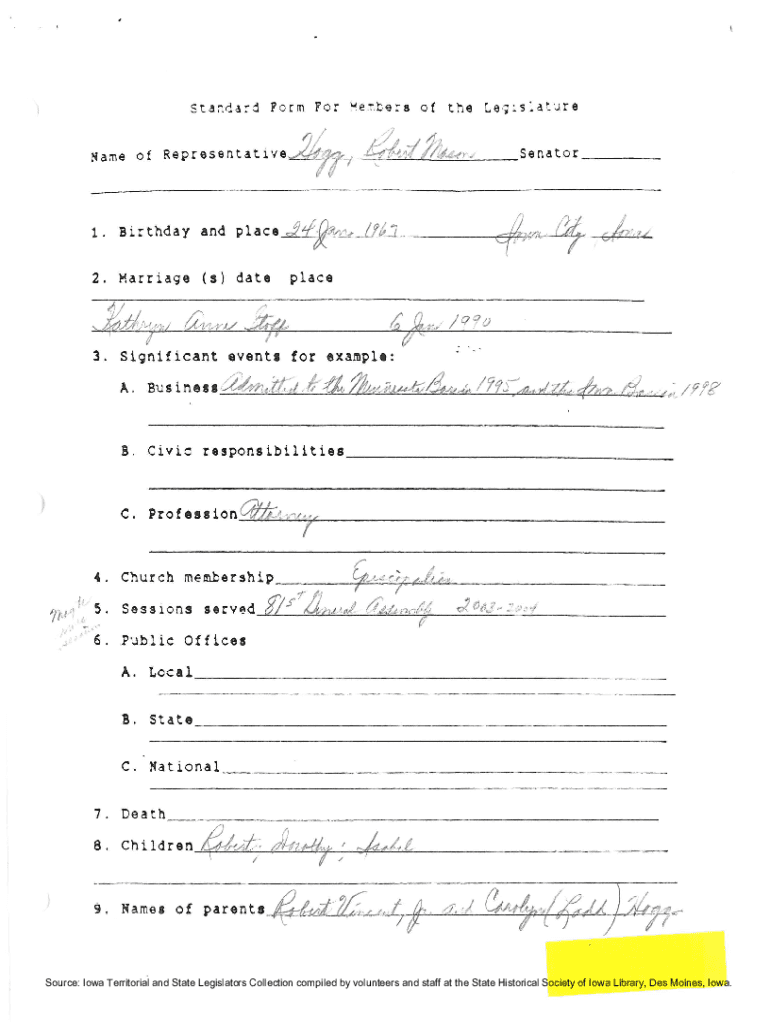 Standard Form For Members of the Legislature
Name of Representative Hogg, Robert Mason Senator
1. Birthday and place 24 Jan. 1967 Iowa City, Iowa
2. Marriage (s) date place
Kathryn Anne Stoff 6 Jan 1990
3. Significant events for example:
A. Business Admitted to the Minnesota Bar in 1995, and the Iowa Bar in 1998
B. Civic responsibilities
C. Profession Attorney
4. Church membership Episcopalian
5. Sessions served 81st General Assembly 2003-2004
6. Public Offices
A. Local
B. State
C. National
7. Death
8. Children Robert; Dorothy; Isabel
9. Names of parents Robert Vincent, Jr. and Carolyn (Ladd) Hogg
Source: Iowa Territorial and State Legislators Collection compiled by volunteers and staff at the State Historical Society of Iowa Library, Des Moines, Iowa.